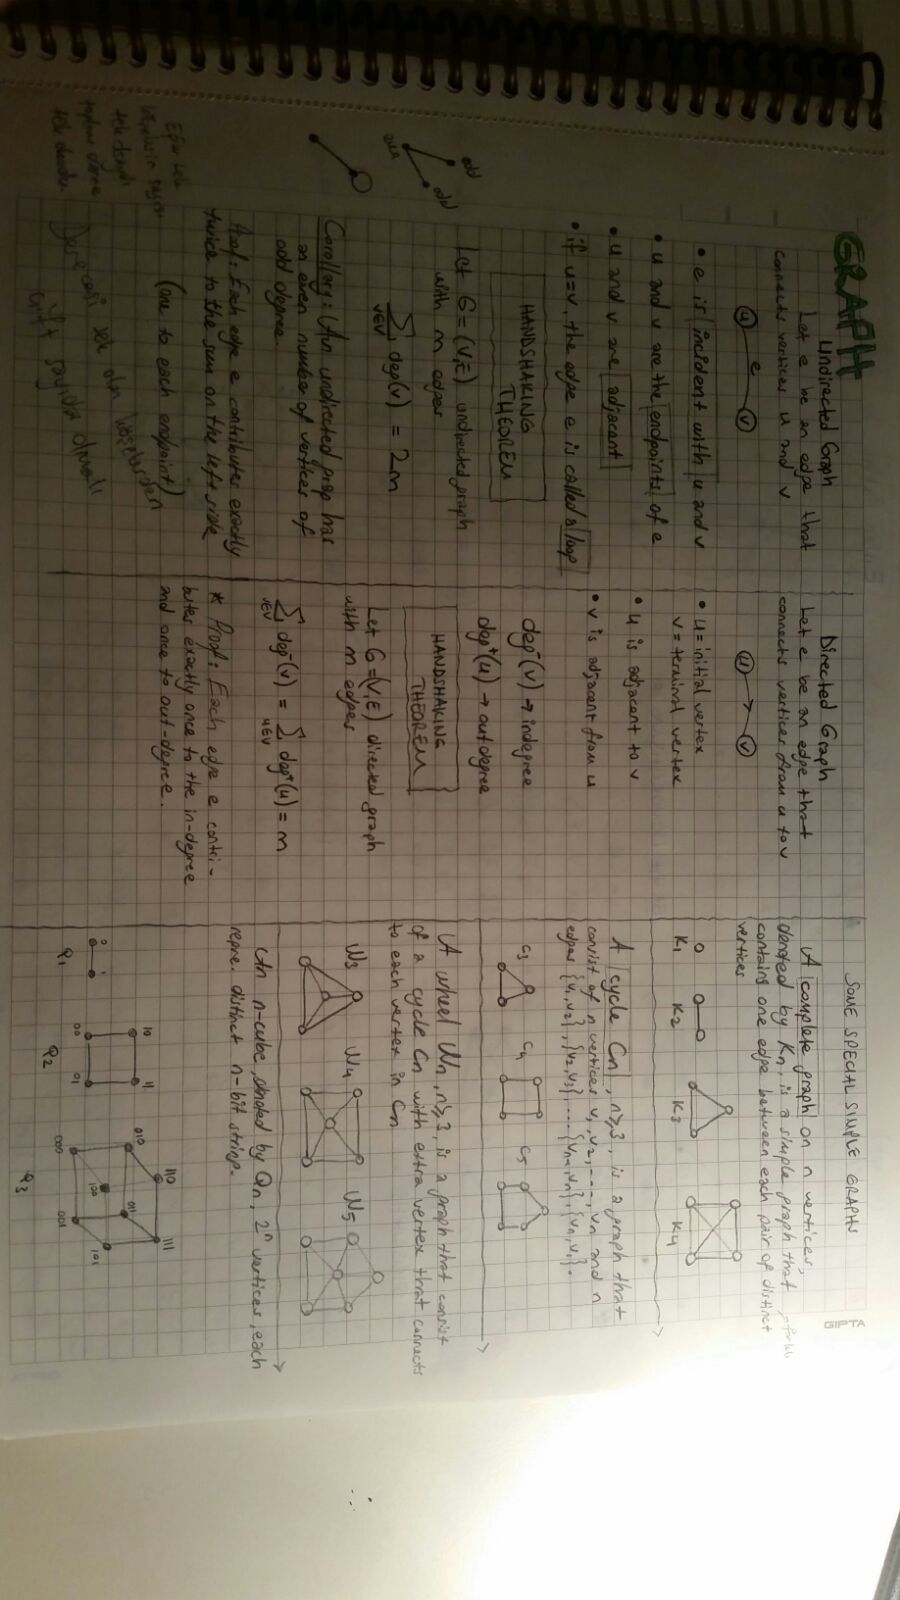 GRAPH
Undirected Graph
Let e be an edge that
connects vertices u and v
u e v
• e is incident with u and v
• u and v are the endpoints of e
• u and v are adjacent
• if u=v, the edge e is called a loop
HANDSHAKING
THEOREM
Let G=(V,E) undirected graph
with m edges
∑ deg(v) = 2m
v∈V
Corollary: An undirected grap has
an even number of vertices of
odd degree.
Proof: Each edge e contributes exactly
twice to the sum on the left side
(one to each endpoint)
Derecesi tek olan köşelerden
çift sayıda olmalı
odd
odd
even
Eğer tek
sayısı
tek
tek olurdu.
Directed Graph
Let e be an edge that
connects vertices from u to v
u v
• u = initial vertex
v = terminal vertex
• u is adjacent to v
• v is adjacent from u
deg⁻(v) → indegree
deg⁺(u) → outdegree
HANDSHAKING
THEOREM
Let G=(V,E) directed graph
with m edges
∑ deg⁻(v) = ∑ deg⁺(u) = m
v∈V u∈V
* Proof: Each edge e contri-
butes exactly once to the in-degree
and once to out-degree.
SOME SPECIAL SIMPLE GRAPHS
GIPTA
A complete graph on n vertices,
denoted by Kn, is a simple graph that
contains one edge between each pair of distinct
vertices
K1 K2 K3 K4
A cycle Cn, n≥3, is a graph that
consist of n vertices v1, v2, ..., vn and n
edges {v1,v2}, {v2,v3}, ... {vn-1,vn}, {vn,v1}.
C3 C4 C5
A wheel Wn, n≥3, is a graph that consist
of a cycle Cn with extra vertex that connects
to each vertex in Cn
W3 W4 W5
An n-cube, denoted by Qn, 2ⁿ vertices, each
repre. distinct n-bit string.
0 1
Q1
10 11
00 01
Q2
110 111
010 011
100 101
000 001
Q3